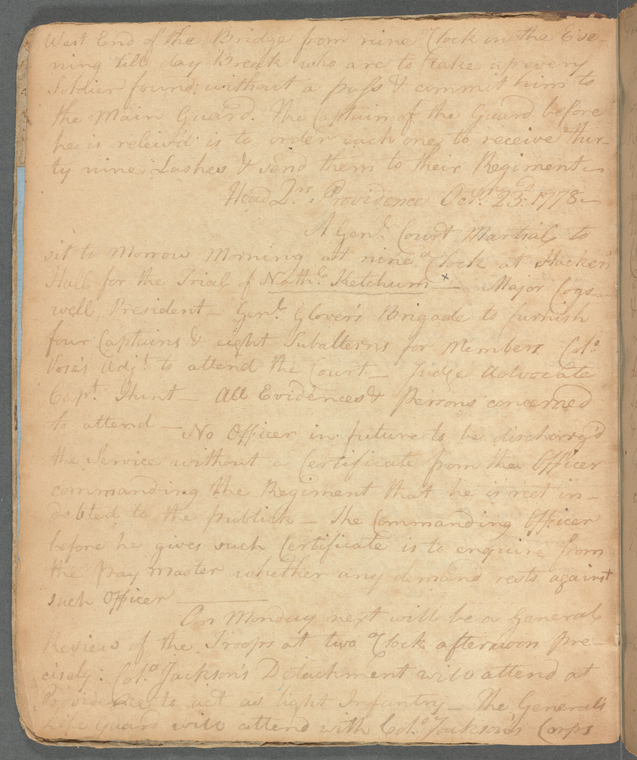 West End of the Bridge from nine oClock in the Eve
ning till day break who are to take up every
Soldier found without a pass & commit him to
the Main Guard. The Captain of the Guard before
he is releiv'd is to order each one to receive thir-
ty nine Lashes & send them to their Regiment
Head Qrs. Providence Octr. 23d. 1778
A Genl. Court Martial to
sit to Morrow Morning att nine oClock at Hacker
Hall for the Trial of Nathl. Ketchum x Major Cogs-
well President Genl. Glover's Brigade to furnish
four Captains & eight Subalterns for Members Colo.
Vose's Adjt. to attend the Court Judge Advocate
Capt. Hunt All Evidences & Persons concerned
to attend No Officer in future to be discharg'd
the Service without a Certificate from the Officer
commanding the Regiment that he is not in-
debted to the publick The Commanding Officer
before he gives such Certificate is to enquire from
the Pay Master whether any demand rests against
such Officer
On Monday next will be a General
Review of the Troops at two oClock afternoon pre-
cisely: Colo. Jackson's Detachment will attend at
Providence to act as light Infantry The Generals
Life Guard will attend with Colo. Jackson's Corps